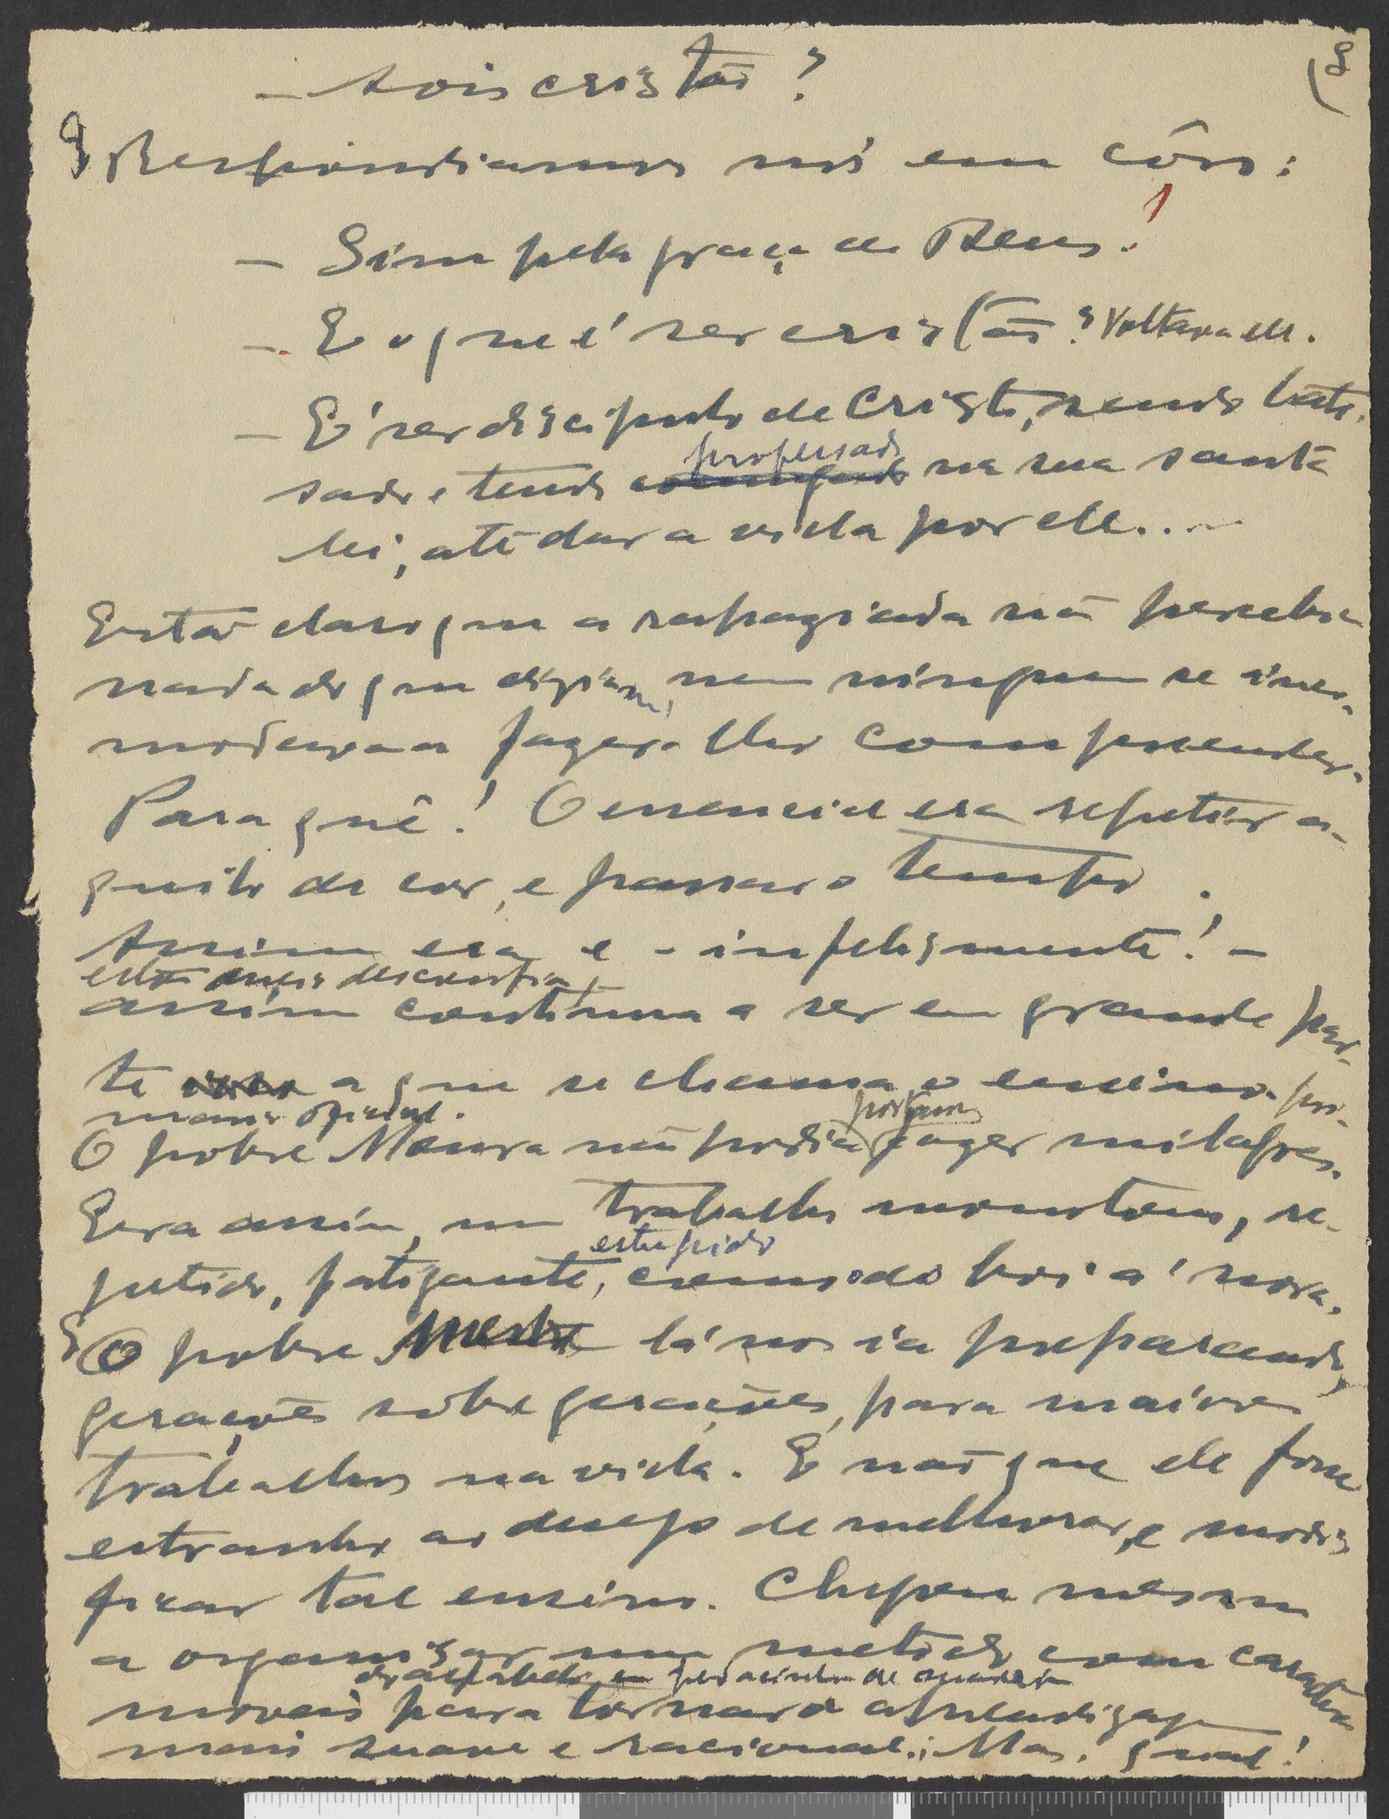 8
— Sois cristão?
Respondiamos nós em côro:
— Sim pela graça de Deus!
— E o que é ser cristão? Voltava elle.
— É ser discipulo de Cristo, sendo bati-
sado e tendo professado na sua santa
lei, até dar a vida por elle...
Está claro que a rapaziada não percebia
nada do que diziam, nem ninguem se inco-
modava a fazer-lho comprehender.
Para quê! O essencial era repetir a-
quilo de cor, e passar o tempo.
Assim era e - infelizmente! -
assim continua a ser em grande par-
te a que se chama o ensino pri-
mario oficial.
O pobre Moura não podia porem fazer milagres.
Era assim, um trabalho monotono, re-
petido, fatigante, estupido como o do boi á nora.
O pobre Mestre lá nos ia preparando,
gerações sôbre gerações, para maiores
trabalhos na vida. E não que ele fosse
estranho ao desejo de melhorar, e modi-
ficar tal ensino. Chegou mesmo
a organisar um metodo com caracteres
moveis do alfabeto em pedacinhos de madeira para tornar a aprendizagem
mais suave e racional. Mas, qual!